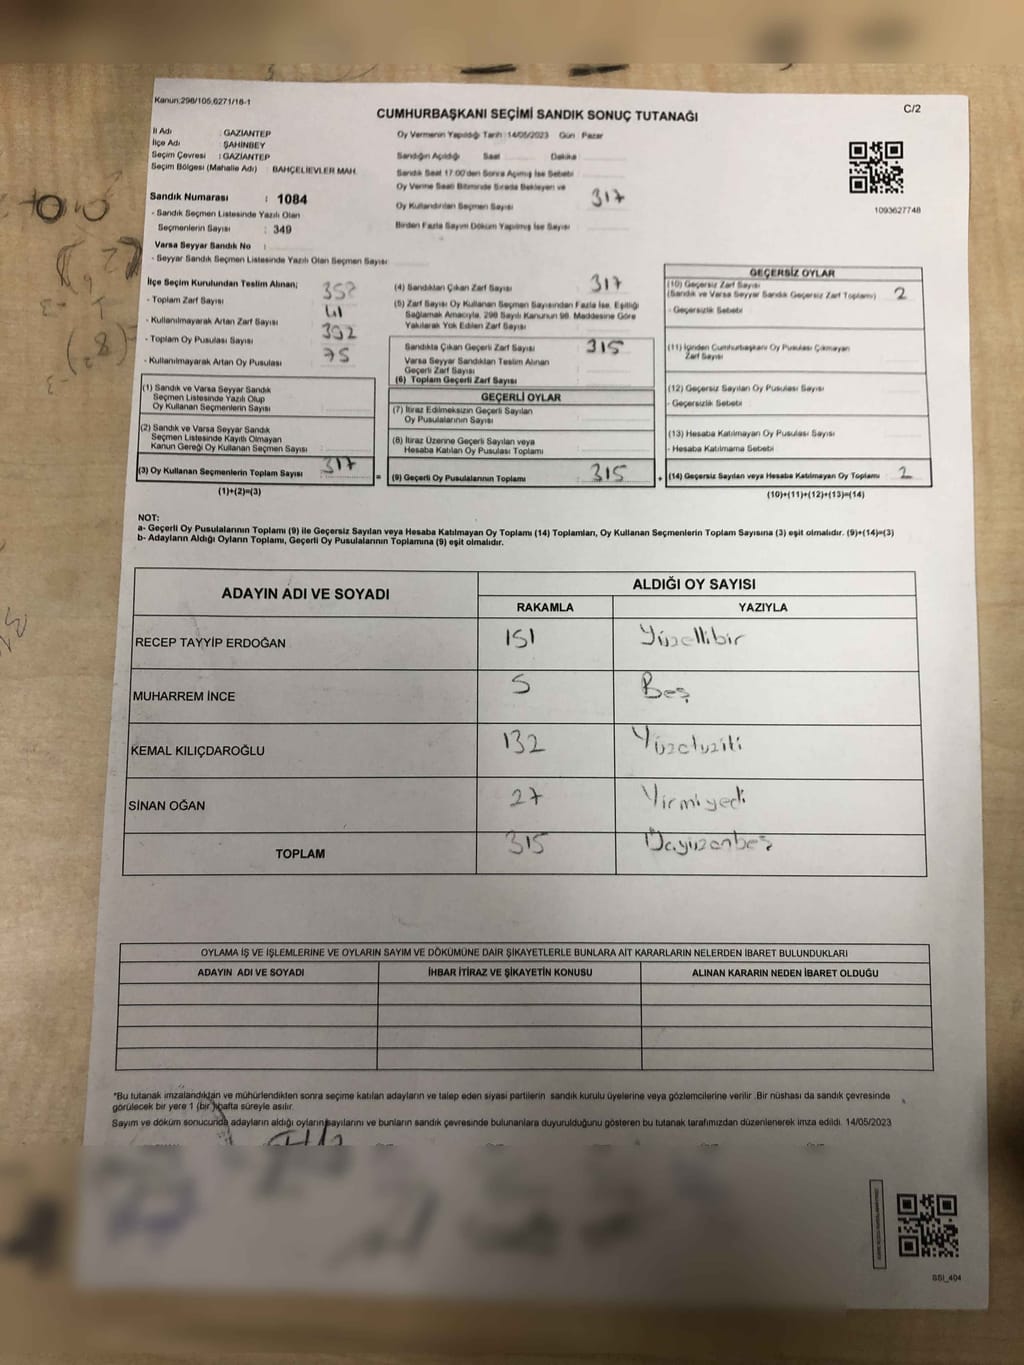 Kanun:298/105,6271/18-1
C/2
CUMHURBAŞKANI SEÇİMİ SANDIK SONUÇ TUTANAĞI
İl Adı : GAZİANTEP
İlçe Adı : ŞAHİNBEY
Seçim Çevresi : GAZİANTEP
Seçim Bölgesi (Mahalle Adı) : BAHÇELİEVLER MAH.
Sandık Numarası : 1084
- Sandık Seçmen Listesinde Yazılı Olan
Seçmenlerin Sayısı : 349
Varsa Seyyar Sandık No :
- Seyyar Sandık Seçmen Listesinde Yazılı Olan Seçmen Sayısı:
Oy Vermenin Yapıldığı Tarih :14/05/2023 Gün Pazar
Sandığın Açıldığı Saat Dakika
Sandık Saat 17.00'den Sonra Açılmış İse Sebebi
Oy Verme Saati Bitiminde Sırada Bekleyen ve
Oy Kullandırılan Seçmen Sayısı 317
Birden Fazla Sayım Döküm Yapılmış İse Sayısı
1093627748
İlçe Seçim Kurulundan Teslim Alınan;
- Toplam Zarf Sayısı
- Kullanılmayarak Artan Zarf Sayısı 41
- Toplam Oy Pusulası Sayısı 392
- Kullanılmayarak Artan Oy Pusulası 75
(1) Sandık ve Varsa Seyyar Sandık
Seçmen Listesinde Yazılı Olup
Oy Kullanan Seçmenlerin Sayısı :
(2) Sandık ve Varsa Seyyar Sandık
Seçmen Listesinde Kayıtlı Olmayan
Kanun Gereği Oy Kullanan Seçmen Sayısı :
(3) Oy Kullanan Seçmenlerin Toplam Sayısı : 317
(1)+(2)=(3)
(4) Sandıktan Çıkan Zarf Sayısı : 317
(5) Zarf Sayısı Oy Kullanan Seçmen Sayısından Fazla İse, Eşitliği
Sağlamak Amacıyla, 298 Sayılı Kanunun 98. Maddesine Göre
Yakılarak Yok Edilen Zarf Sayısı :
Sandıkta Çıkan Geçerli Zarf Sayısı : 315
Varsa Seyyar Sandıktan Teslim Alınan
Geçerli Zarf Sayısı :
(6) Toplam Geçerli Zarf Sayısı :
GEÇERLİ OYLAR
(7) İtiraz Edilmeksizin Geçerli Sayılan
Oy Pusulalarının Sayısı :
(8) İtiraz Üzerine Geçerli Sayılan veya
Hesaba Katılan Oy Pusulası Toplamı :
= (9) Geçerli Oy Pusulalarının Toplamı : 315
GEÇERSİZ OYLAR
(10) Geçersiz Zarf Sayısı
(Sandık ve Varsa Seyyar Sandık Geçersiz Zarf Toplamı) : 2
- Geçersizlik Sebebi :
(11) İçinden Cumhurbaşkanı Oy Pusulası Çıkmayan
Zarf Sayısı :
(12) Geçersiz Sayılan Oy Pusulası Sayısı :
- Geçersizlik Sebebi :
(13) Hesaba Katılmayan Oy Pusulası Sayısı :
- Hesaba Katılmama Sebebi :
+ (14) Geçersiz Sayılan veya Hesaba Katılmayan Oy Toplamı : 2
(10)+(11)+(12)+(13)=(14)
NOT:
a- Geçerli Oy Pusulalarının Toplamı (9) ile Geçersiz Sayılan veya Hesaba Katılmayan Oy Toplamı (14) Toplamları, Oy Kullanan Seçmenlerin Toplam Sayısına (3) eşit olmalıdır. (9)+(14)=(3)
b- Adayların Aldığı Oyların Toplamı, Geçerli Oy Pusulalarının Toplamına (9) eşit olmalıdır.
ADAYIN ADI VE SOYADI
ALDIĞI OY SAYISI
RAKAMLA YAZIYLA
RECEP TAYYİP ERDOĞAN 151 Yüzellibir
MUHARREM İNCE 5 Beş
KEMAL KILIÇDAROĞLU 132
SİNAN OĞAN 27 Yirmiyedi
TOPLAM 315 Üçyüzonbeş
OYLAMA İŞ VE İŞLEMLERİNE VE OYLARIN SAYIM VE DÖKÜMÜNE DAİR ŞİKAYETLERLE BUNLARA AİT KARARLARIN NELERDEN İBARET BULUNDUKLARI
ADAYIN ADI VE SOYADI İHBAR İTİRAZ VE ŞİKAYETİN KONUSU ALINAN KARARIN NEDEN İBARET OLDUĞU
*Bu tutanak imzalandıktan ve mühürlendikten sonra seçime katılan adayların ve talep eden siyasi partilerin sandık kurulu üyelerine veya gözlemcilerine verilir. Bir nüshası da sandık çevresinde
görülecek bir yere 1 (bir) hafta süreyle asılır.
Sayım ve döküm sonucunda adayların aldığı oyların sayılarını ve bunların sandık çevresinde bulunanlara duyurulduğunu gösteren bu tutanak tarafımızdan düzenlenerek imza edildi. 14/05/2023
SSI_404